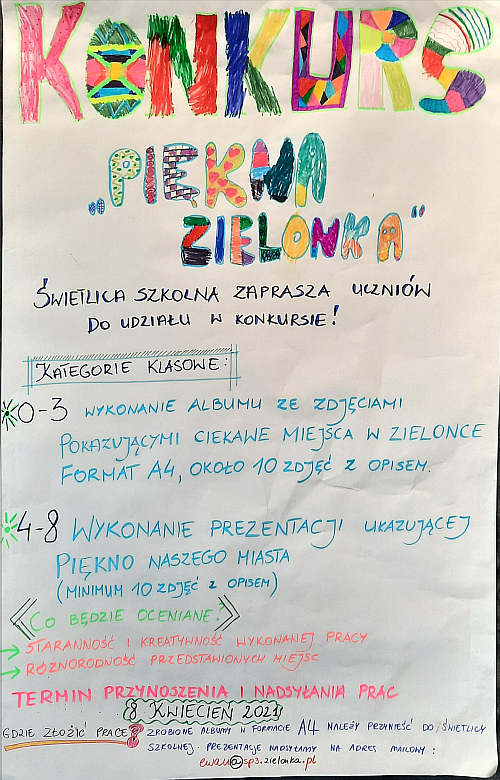 KONKURS
„PIĘKNA
ZIELONKA"
ŚWIETLICA SZKOLNA ZAPRASZA UCZNIÓW
DO UDZIAŁU W KONKURSIE!
KATEGORIE KLASOWE:
0-3 WYKONANIE ALBUMU ZE ZDJĘCIAMI
POKAZUJĄCYMI CIEKAWE MIEJSCA W ZIELONCE
FORMAT A4, OKOŁO 10 ZDJĘĆ Z OPISEM.
4-8 WYKONANIE PREZENTACJI UKAZUJĄCEJ
PIĘKNO NASZEGO MIASTA
(MINIMUM 10 ZDJĘĆ Z OPISEM)
CO BĘDZIE OCENIANE?
→ STARANNOŚĆ I KREATYWNOŚĆ WYKONANEJ PRACY
→ RÓŻNORODNOŚĆ PRZEDSTAWIONYCH MIEJSC
TERMIN PRZYNOSZENIA I NADSYŁANIA PRAC
8 KWIECIEŃ 2021
GDZIE ZŁOŻYĆ PRACE? ZROBIONE ALBUMY W FORMACIE A4 NALEŻY PRZYNIEŚĆ DO ŚWIETLICY
SZKOLNEJ. PREZENTACJE NADSYŁAMY NA ADRES MAILOWY:
@sp3.zielonka.pl